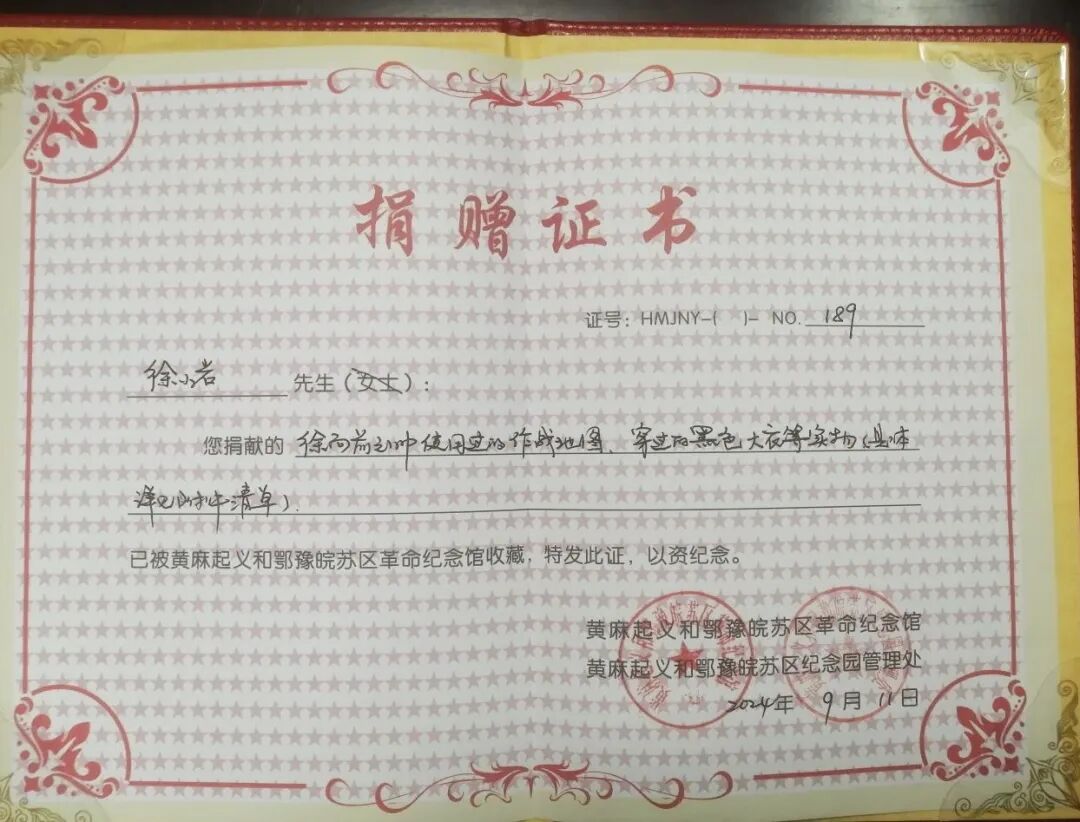 捐赠证书
证号：HMJNY-( )- NO. 189
徐小岩 先生（女士）：
您捐献的 徐向前元帅使用过的作战地图、穿过的黑色大衣等实物（具体
详见附件清单）.
已被黄麻起义和鄂豫皖苏区革命纪念馆收藏，特发此证，以资纪念。
黄麻起义和鄂豫皖苏区革命纪念馆
黄麻起义和鄂豫皖苏区纪念园管理处
2024年 9月 11日